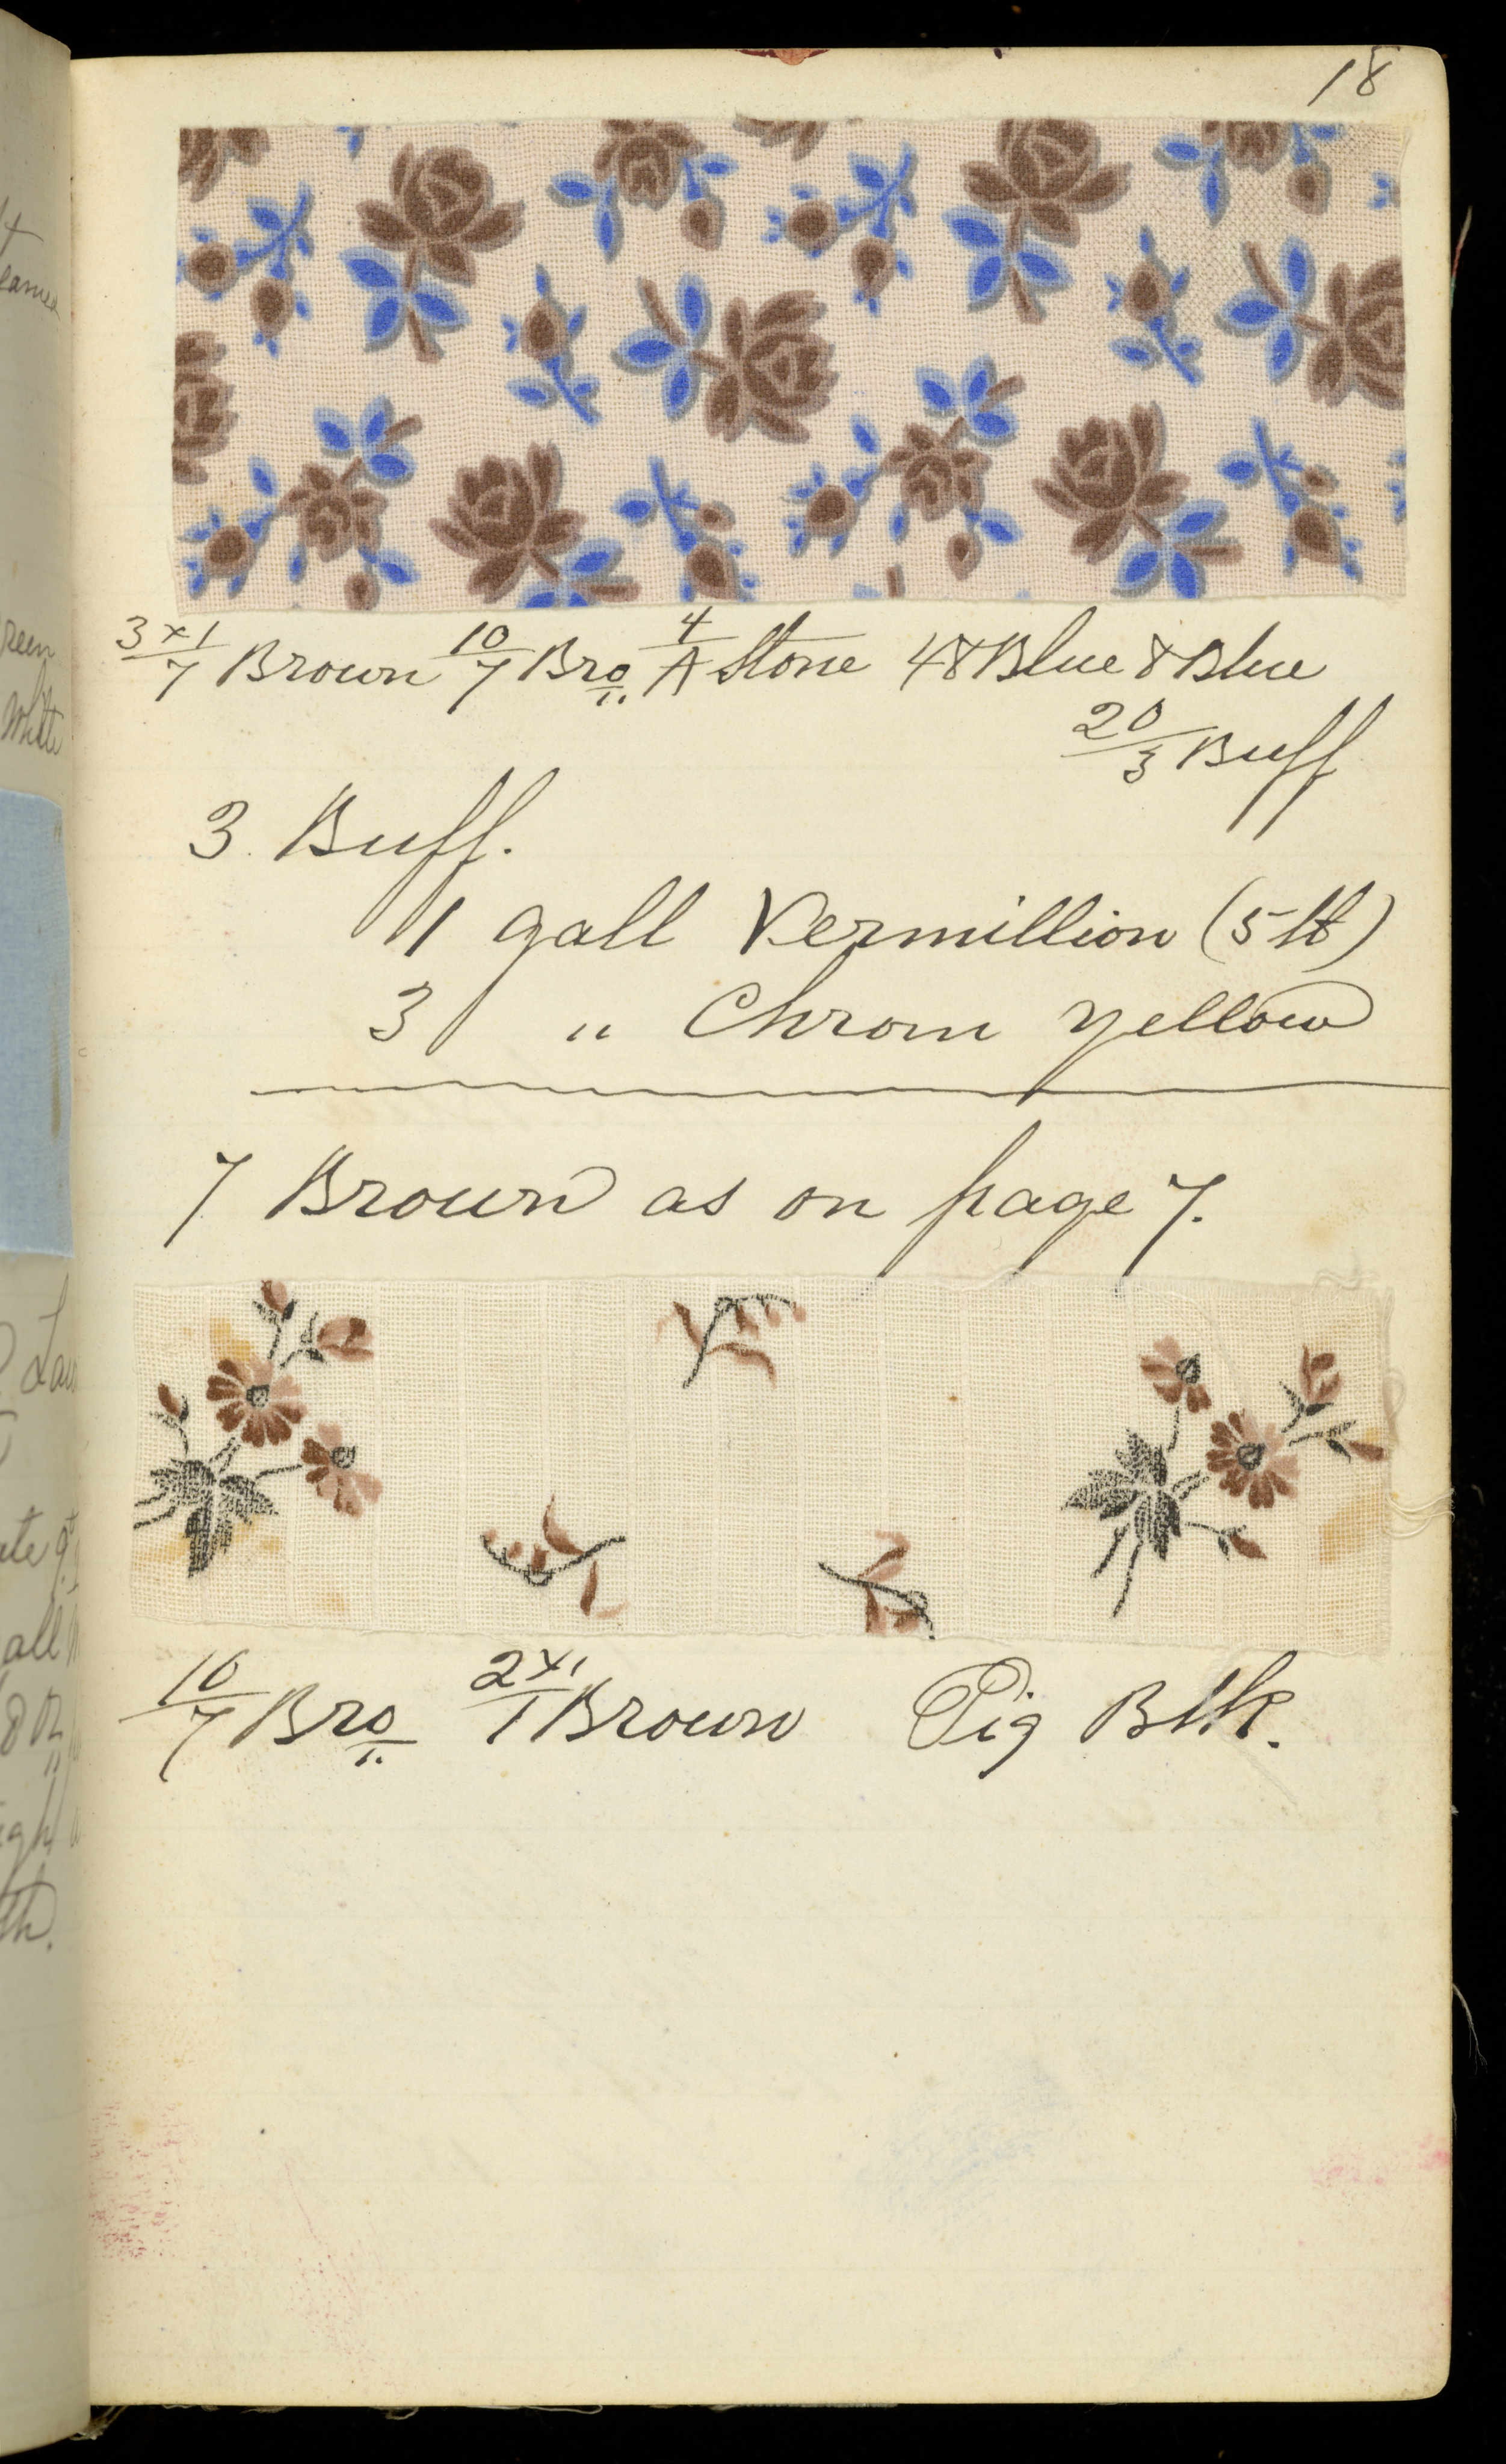 18
3x1/7 Brown 10/7 Bro 4/A Stone 48 Blue 8 Blue
20/3 Buff
3 Buff.
1 gall Vermillion (5 lb)
3 " Chrom yellow
7 Brown as on page 7.
10/7 Bro 2x1/1 Brown Pig Blk.